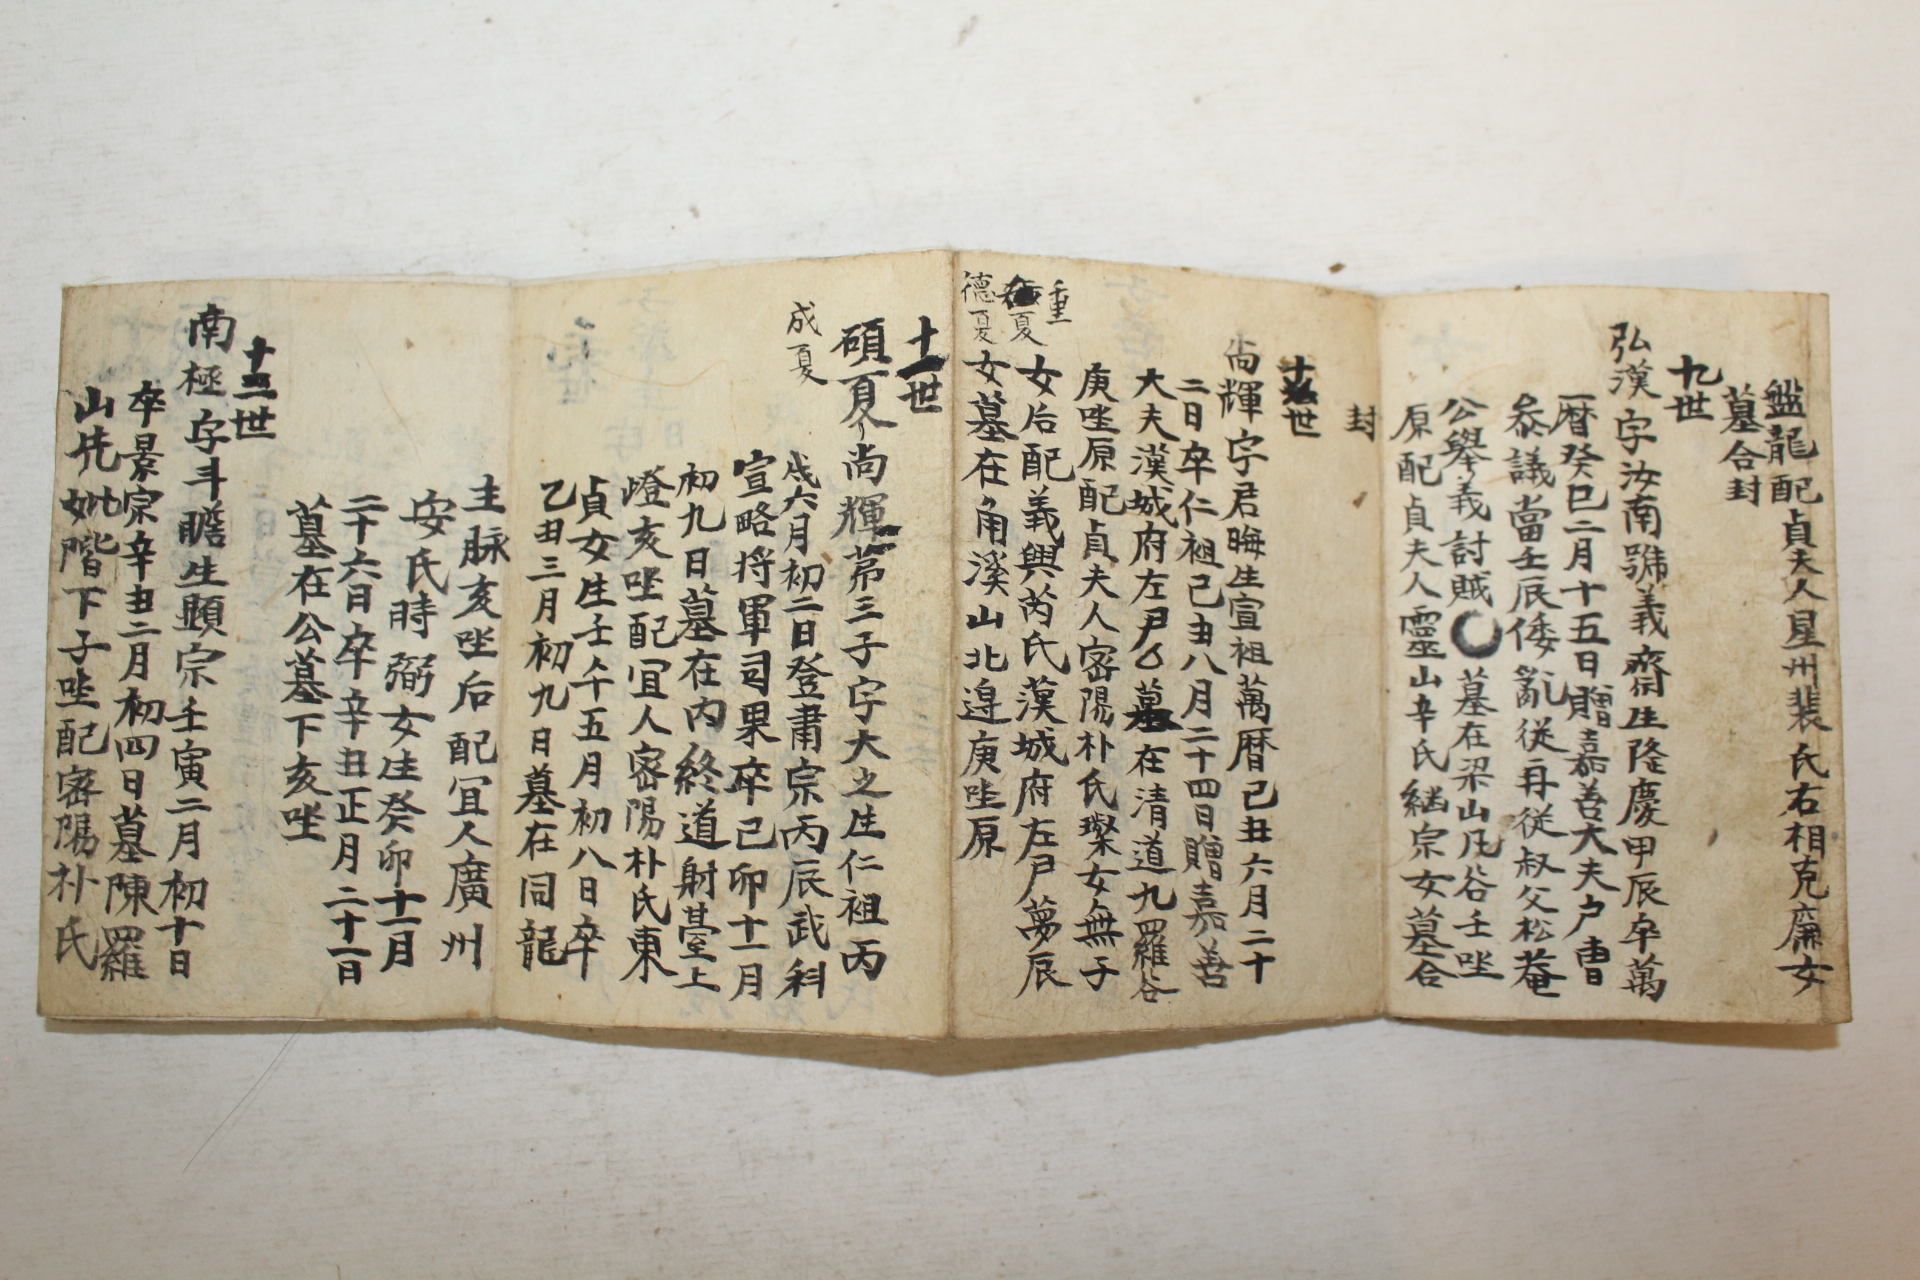 盤龍配貞夫人星州裴氏右相克廉女
墓合封
九世
弘漢字汝南號義齋生隆慶甲辰卒萬
曆癸巳二月十五日贈嘉善大夫户曹
叅議當壬辰倭亂從再從叔父松菴
公擧義討賊墓在梁山凡谷壬坐
原配貞夫人靈山辛氏継宗女墓合
封
十世
尙輝字君晦生宣祖萬曆己丑六月二十
二日卒仁祖己丑八月二十四日贈嘉善
大夫漢城府左尹墓在清道九羅谷
庚坐原配貞夫人密陽朴氏璨女無子
重夏
女后配義興芮氏漢城府左尹夢辰
德夏
女墓在角溪山北邊庚坐原
十一世
碩夏尙輝第三子字大之生仁祖丙
成夏
戌六月初二日登肅宗丙辰武科
宣略將軍司果卒己卯十一月
初九日墓在内終道射臺上
燈亥坐配宜人密陽朴氏東
貞女生壬午五月初八日卒
乙丑三月初九日墓在同龍
主脉亥坐后配宜人廣州
安氏時弼女生癸卯十一月
二十六日卒辛丑正月二十一日
墓在公墓下亥坐
十二世
南極字斗瞻生顯宗壬寅二月初十日
卒景宗辛丑二月初四日墓陳羅
山先妣階下子坐配密陽朴氏